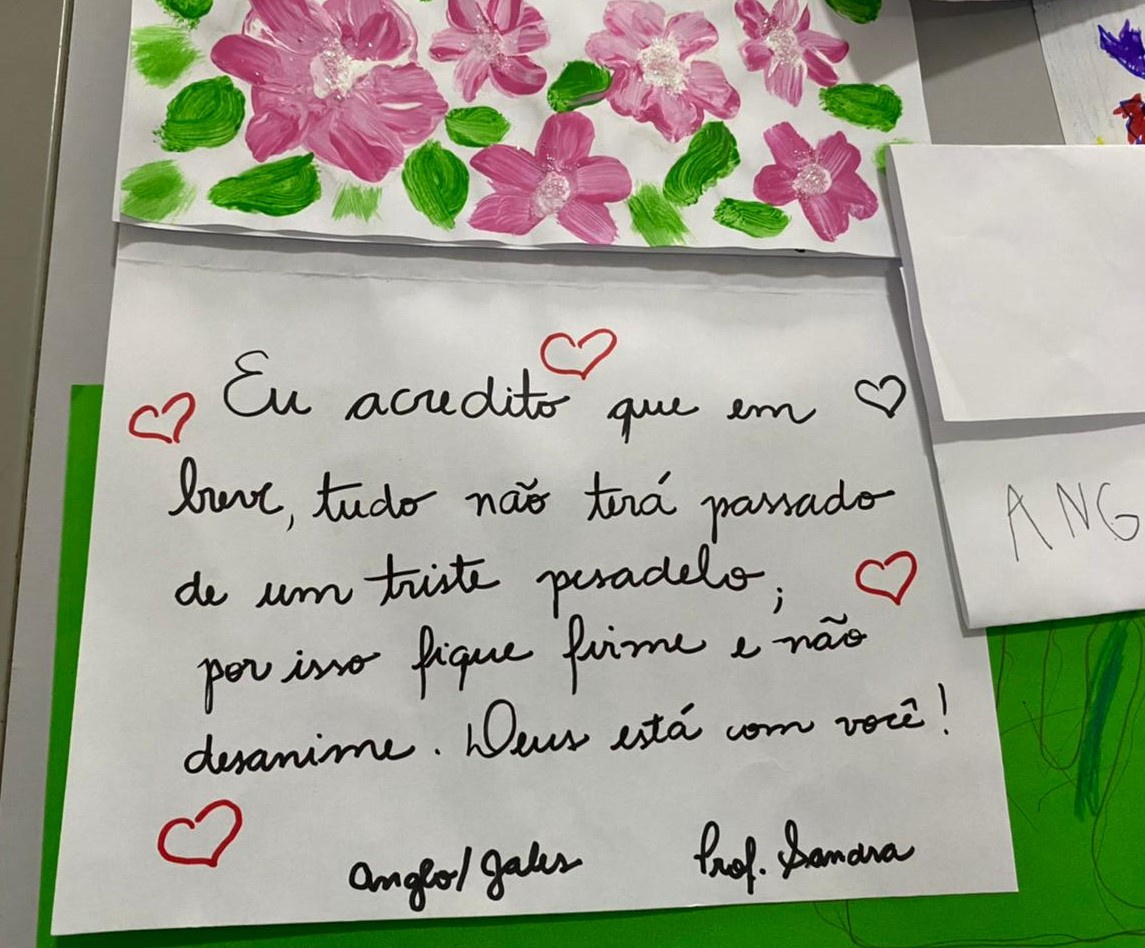 Eu acredito que em
breve, tudo não terá passado
de um triste pesadelo;
por isso fique firme e não
desanime. Deus está com você!
Anglo/Jales Prof. Sandra
ANG